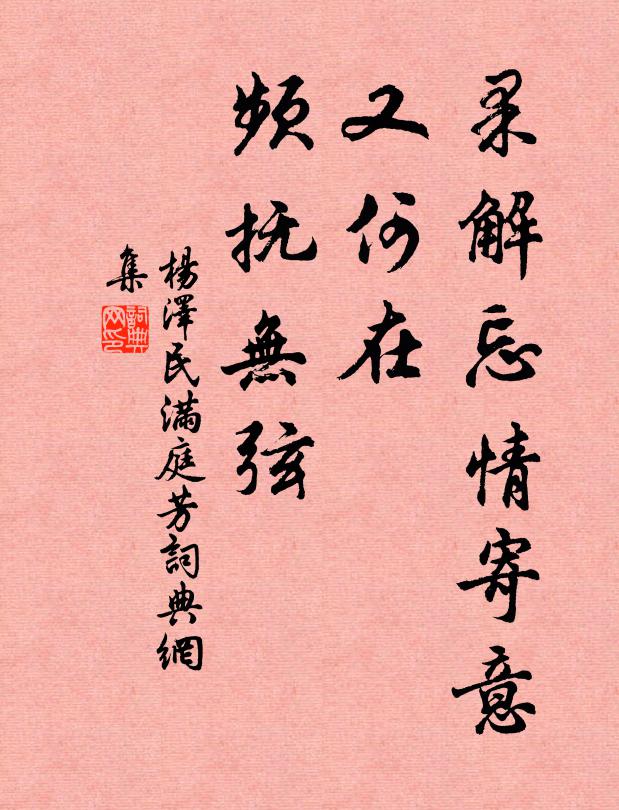 果解忘情寄意
又何在
頻抚無弦
楊澤民滿庭芳詞典網
集
詞典网印